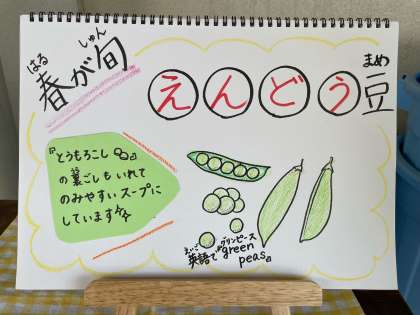 はる しゅん
春が旬
まめ
えんどう豆
『とうもろこし』
の裏ごしもいれて
のみやすいスープに
しています
えいご グリンピース
英語で"green
peas"